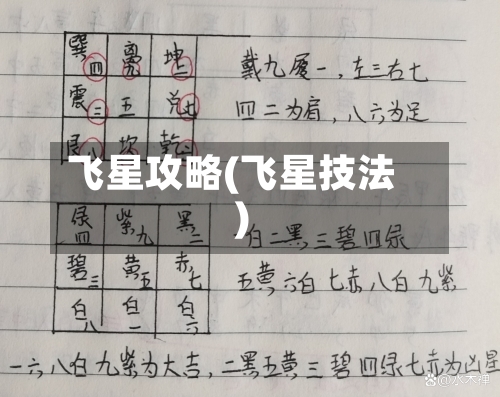 巽四 离九 坤二
戴九履一，左三右七
震三 五 兑七
四二为肩，八六为足
艮八 坎 乾
飞星攻略(飞星技法)
绿四 紫九 黑二
一白二黑三碧四绿
碧三 黄五 赤七
五黄六白七赤八白九紫
白八 白一 白六
一六八白九紫为大吉，二黑五黄三碧四绿七赤为凶星